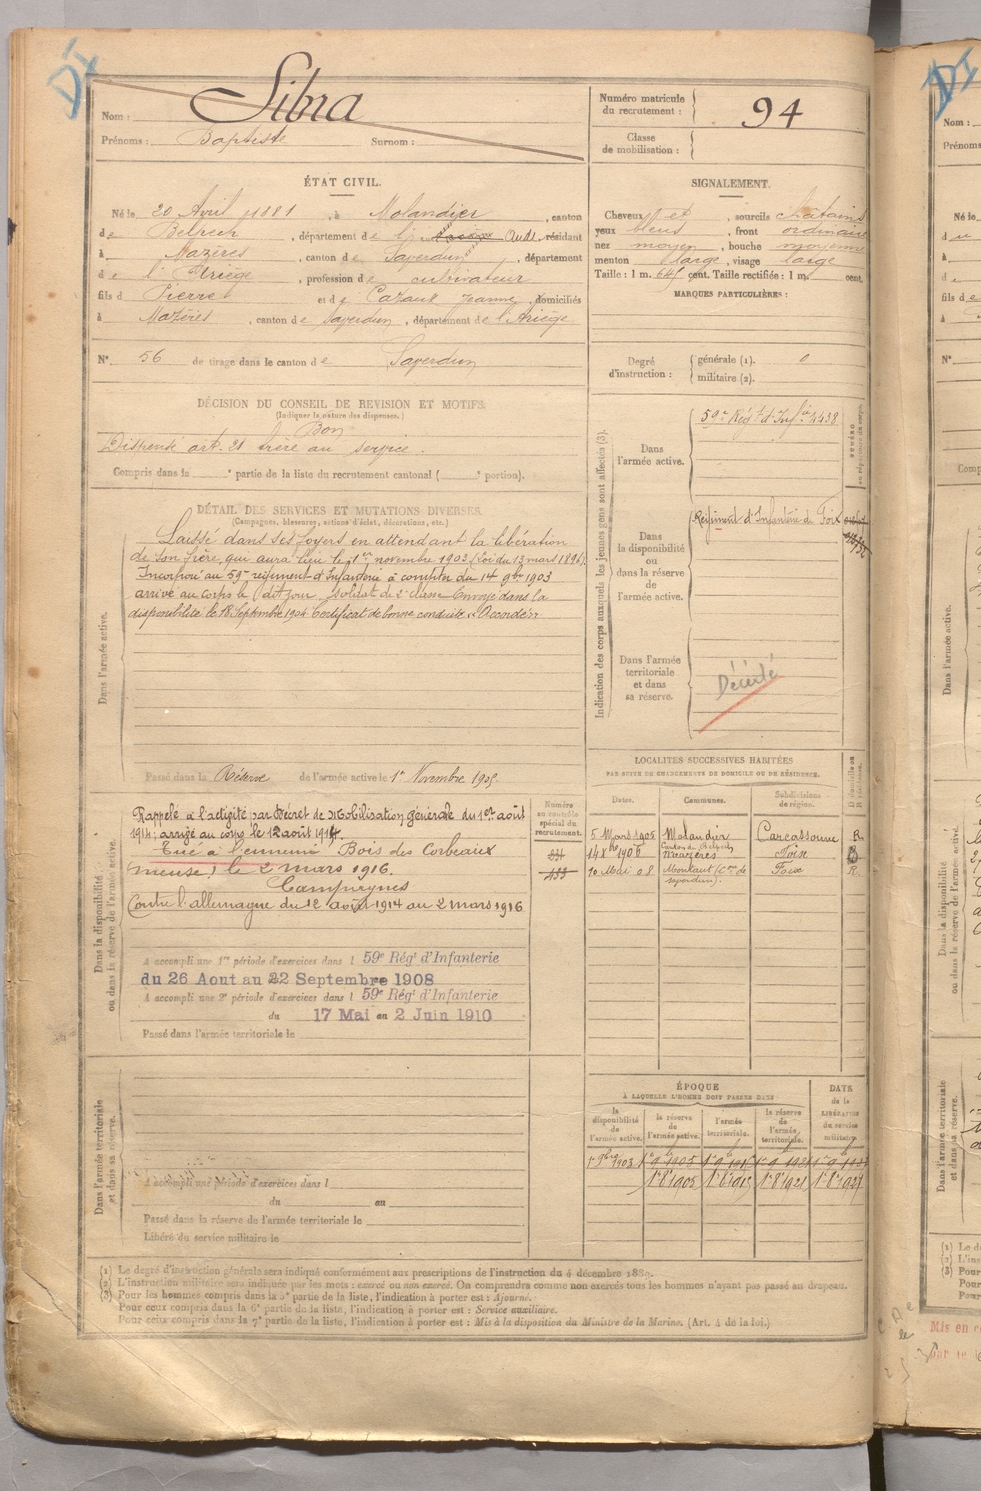 Nom : Sibra
Prénoms : Baptiste Surnom :
Numéro matricule du recrutement : 94
Classe de mobilisation :
ÉTAT CIVIL.
Né le 20 Avril 1881, à Molandier, canton
de Belpech, département de l' Aude, résidant
à Mazères, canton de Saverdun, département
de l' Ariège, profession de cultivateur
fils de Pierre et de Cazaux Jeanne, domiciliés
à Mazères, canton de Saverdun, département de l'Ariège
N° 56 de tirage dans le canton de Saverdun
SIGNALEMENT.
Cheveux et, sourcils châtains
yeux bleus, front ordinaire
nez moyen, bouche moyenne
menton large, visage large
Taille : 1 m. 645 cent. Taille rectifiée : 1 m. cent.
MARQUES PARTICULIÈRES :
Degré d'instruction : générale (1). 0
militaire (2).
DÉCISION DU CONSEIL DE REVISION ET MOTIFS.
(Indiquer la nature des dispenses.)
Bon
Dispensé art. 21 frère au service.
Compris dans la e partie de la liste du recrutement cantonal ( e portion).
DÉTAIL DES SERVICES ET MUTATIONS DIVERSES.
(Campagnes, blessures, actions d'éclat, décorations, etc.)
Dans l'armée active.
Laissé dans ses foyers en attendant la libération
de son frère, qui aura lieu le 1er novembre 1903 (Loi du 13 mars 1896).
Incorporé au 59e régiment d'Infanterie à compter du 14 9bre 1903
arrivé au corps le dit jour soldat de 2e classe Envoyé dans la
disponibilité le 18 Septembre 1904 Certificat de bonne conduite "Accordé"
Passé dans la Réserve de l'armée active le 1er Novembre 1905.
Indication des corps auxquels les jeunes gens sont affectés (3).
Dans l'armée active.
59e Régt d'Infie 4438
Dans la disponibilité ou dans la réserve de l'armée active.
Régiment d'Infanterie de Foix
Dans l'armée territoriale et dans sa réserve.
Décédé
Dans la disponibilité ou dans la réserve de l'armée active.
Rappelé à l'activité par Décret de Mobilisation générale du 1er août
1914; arrivé au corps le 12 août 1914.
Tué à l'ennemi, Bois des Corbeaux
(Meuse) le 2 mars 1916.
Campagnes
Contre l'allemagne du 12 août 1914 au 2 mars 1916
A accompli une 1re période d'exercices dans l 59e Régt d'Infanterie
du 26 Aout au 22 Septembre 1908
A accompli une 2e période d'exercices dans l 59e Régt d'Infanterie
du 17 Mai au 2 Juin 1910
Passé dans l'armée territoriale le
Numéro au contrôle spécial du recrutement.
LOCALITÉS SUCCESSIVES HABITÉES
PAR SUITE DE CHANGEMENTS DE DOMICILE OU DE RÉSIDENCE.
Dates. Communes. Subdivisions de région.
5 Mars 1905 Molandier Canton de Belpech Carcassonne R.
1906 Mazères Foix
10 Mai 08 Montaut (Con de Saverdun). Foix R.
ÉPOQUE
À LAQUELLE L'HOMME DOIT PASSER DANS
la disponibilité de l'armée active. la réserve de l'armée active. l'armée territoriale. la réserve de l'armée territoriale. DATE de la LIBÉRATION du service militaire.
Dans l'armée territoriale et dans sa réserve.
A accompli une période d'exercices dans l
du au
Passé dans la réserve de l'armée territoriale le
Libéré du service militaire le
(1) Le degré d'instruction générale sera indiqué conformément aux prescriptions de l'instruction du 4 décembre 1889.
(2) L'instruction militaire sera indiquée par les mots : exercé ou non exercé. On comprendra comme non exercés tous les hommes n'ayant pas passé au drapeau.
(3) Pour les hommes compris dans la 5e partie de la liste, l'indication à porter est : Ajourné.
Pour ceux compris dans la 6e partie de la liste, l'indication à porter est : Service auxiliaire.
Pour ceux compris dans la 7e partie de la liste, l'indication à porter est : Mis à la disposition du Ministre de la Marine. (Art. 4 de la loi.)